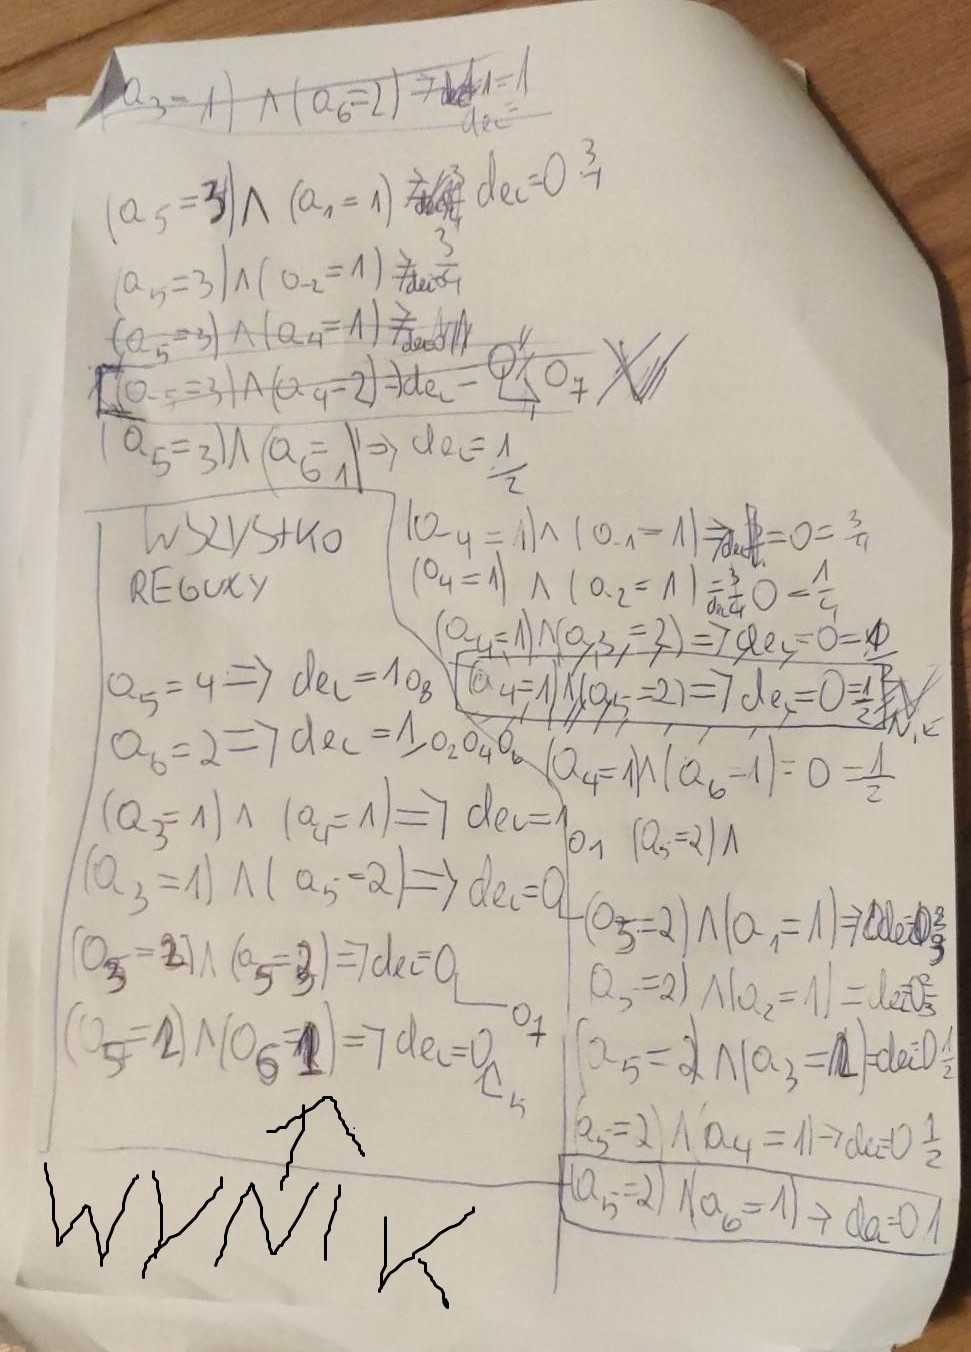 (a₃=1) ∧ (a₆=2) ⇒ 1=1
dec=
(a₅=3) ∧ (a₁=1) ⇒ dec=0 3/4
(a₅=3) ∧ (a₂=1) ⇒ dec 3/4
(a₅=3) ∧ (a₄=1) ⇒ dec
(a₅=3) ∧ (a₄=2) ⇒ dec = O₇
(a₅=3) ∧ (a₆=1) ⇒ dec=1/2
WSZYSTKO
REGUŁY
a₅=4 ⇒ dec=1 O₈
a₆=2 ⇒ dec=1, O₂ O₄ O₆
(a₃=1) ∧ (a₄=1) ⇒ dec=1 O₁
(a₃=1) ∧ (a₅=2) ⇒ dec=0
(a₃=2) ∧ (a₅=3) ⇒ dec=0 O₇
(a₅=2) ∧ (a₆=1) ⇒ dec=0
WYNIK
(a₄=1) ∧ (a₁=1) ⇒ dec=0=3/4
(a₄=1) ∧ (a₂=1) = dec 0=1/4
(a₄=1) ∧ (a₃=2) ⇒ dec=0=
(a₄=1) ∧ (a₅=2) ⇒ dec=0=1/2
(a₄=1) ∧ (a₆=1) = 0 = 1/2
(a₅=2) ∧
(a₅=2) ∧ (a₁=1) ⇒ dec=0 2/3
(a₅=2) ∧ (a₂=1) = dec=0 2/3
(a₅=2) ∧ (a₃=1) = dec=0 1/2
(a₅=2) ∧ (a₄=1) → dec=0 1/2
(a₅=2) ∧ (a₆=1) → dec=0 1